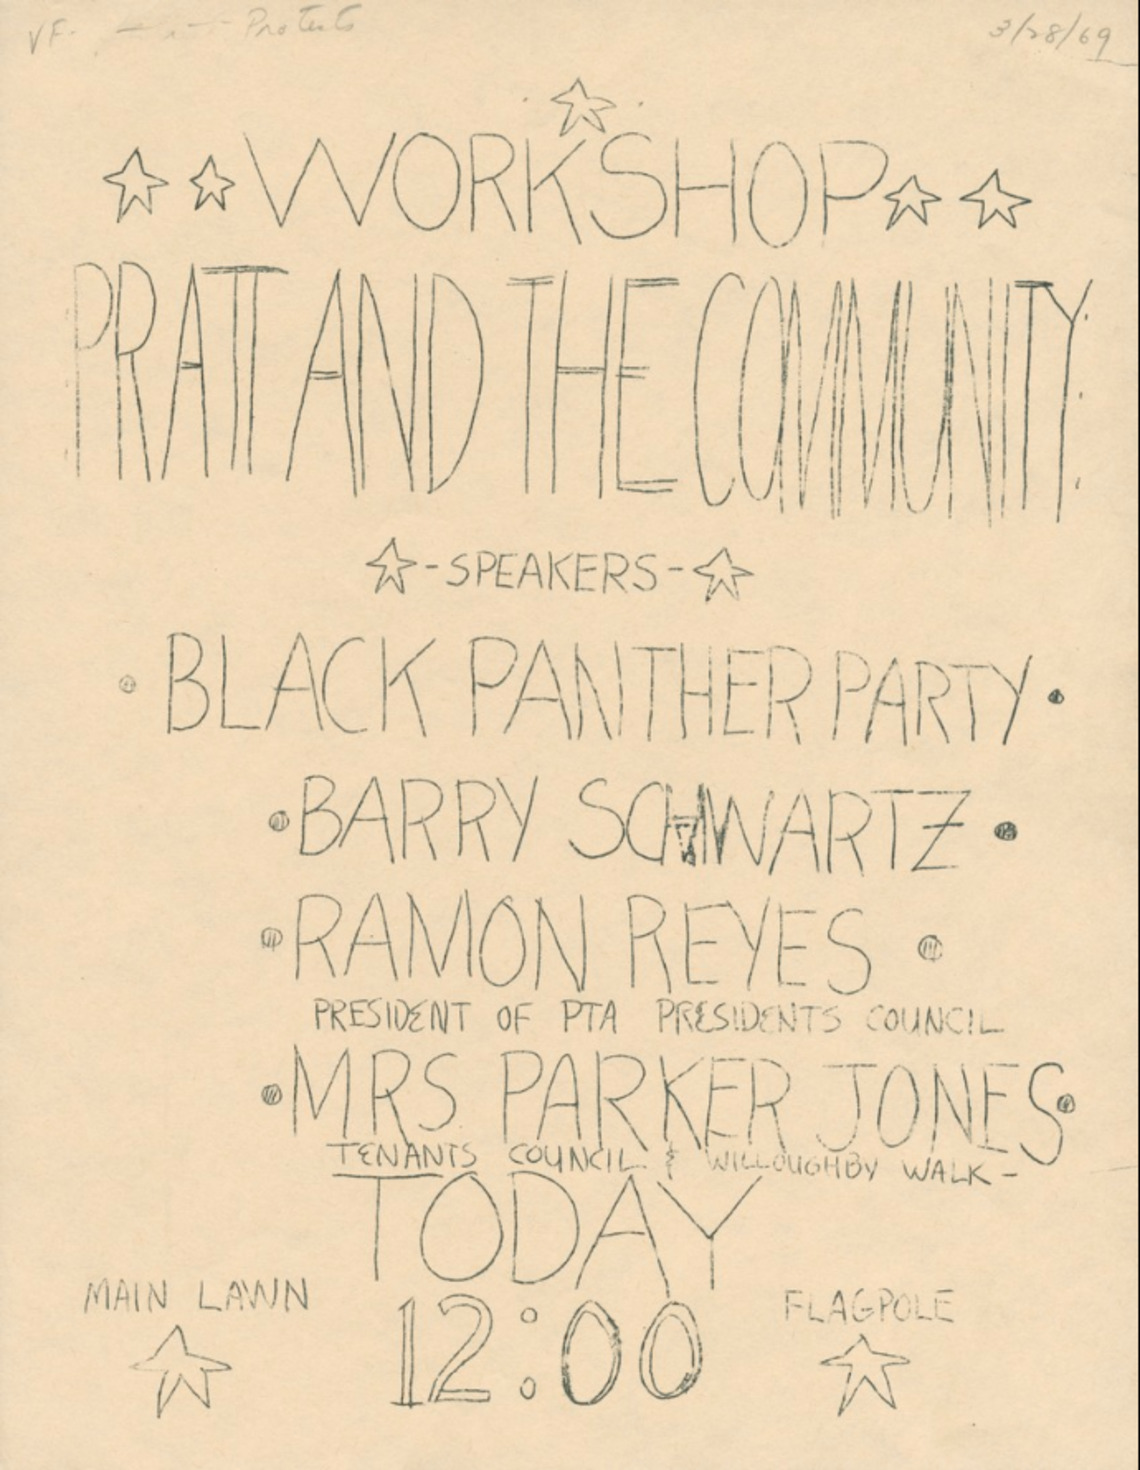 VF. Protests
3/28/69
WORKSHOP
PRATT AND THE COMMUNITY:
-SPEAKERS-
BLACK PANTHER PARTY
BARRY SCHWARTZ
RAMON REYES
PRESIDENT OF PTA PRESIDENTS COUNCIL
MRS. PARKER JONES
TENANTS COUNCIL & WILLOUGHBY WALK-
TODAY
MAIN LAWN
12:00
FLAGPOLE